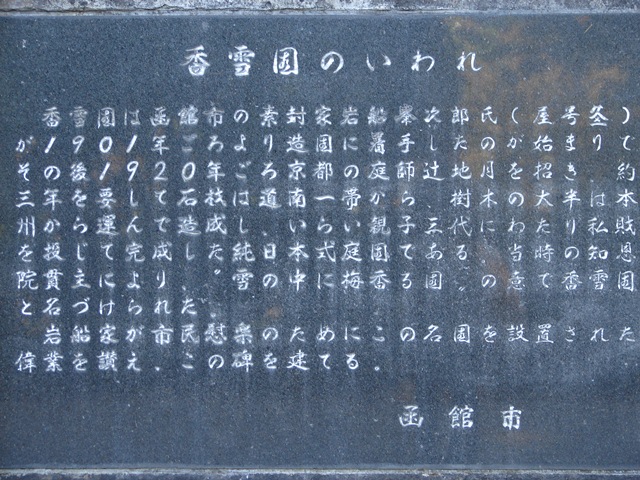 香雪園のいわれ
香雪園は函館市の素封家岩船峯次郎氏(屋号)
が1901年ごろより造園に着手したのが始まりで
その後1920年ごろ京都の庭師辻地月を招き、約
三年を要して石技は道南一帯から.樹木の大半は本
州から運んで造成し.いらい親子三代にわたり私財
を投じて完成した純日本式庭園である。当時の知恩
院貫主により.〝雪の中に梅香る園〟の意で香雪園
と名づけられた。
岩船家が市民慰楽のためにこの名園を設置された
偉業を讃え.この碑を建てる.
函館市